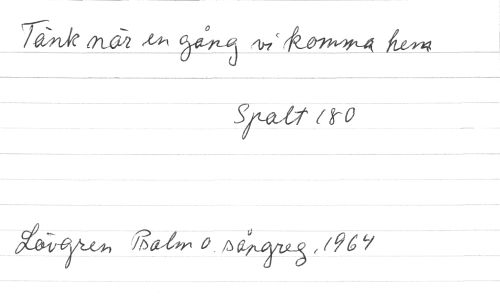 Tänk när en gång vi komma hem
Spalt 180
Lövgren Psalm o. sångreg. 1964